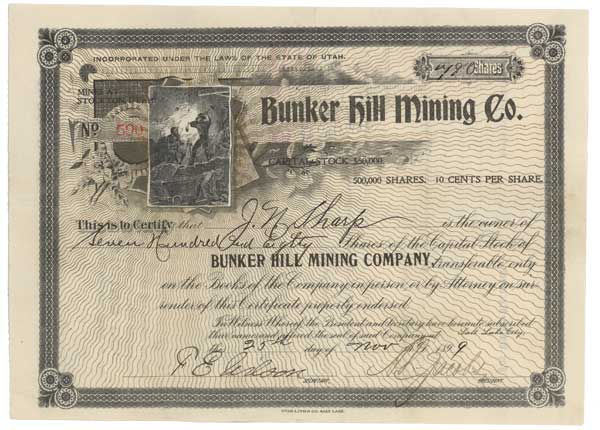 INCORPORATED UNDER THE LAWS OF THE STATE OF UTAH.
780 Shares
MINES AT
STOCKTON, UTAH.
No 590
Bunker Hill Mining Co.
CAPITAL STOCK $50,000.
500,000 SHARES. 10 CENTS PER SHARE.
This is to Certify that J. N. Sharp is the owner of
Seven Hundred and Eighty Shares of the Capital Stock of
BUNKER HILL MINING COMPANY, transferable only
on the Books of the Company in person or by Attorney on sur-
render of this Certificate properly endorsed.
In Witness Whereof, the President and Secretary have hereunto subscribed
their names and affixed the seal of said Company at Salt Lake City,
the 25th day of Nov 1899
SECRETARY.
PRESIDENT.